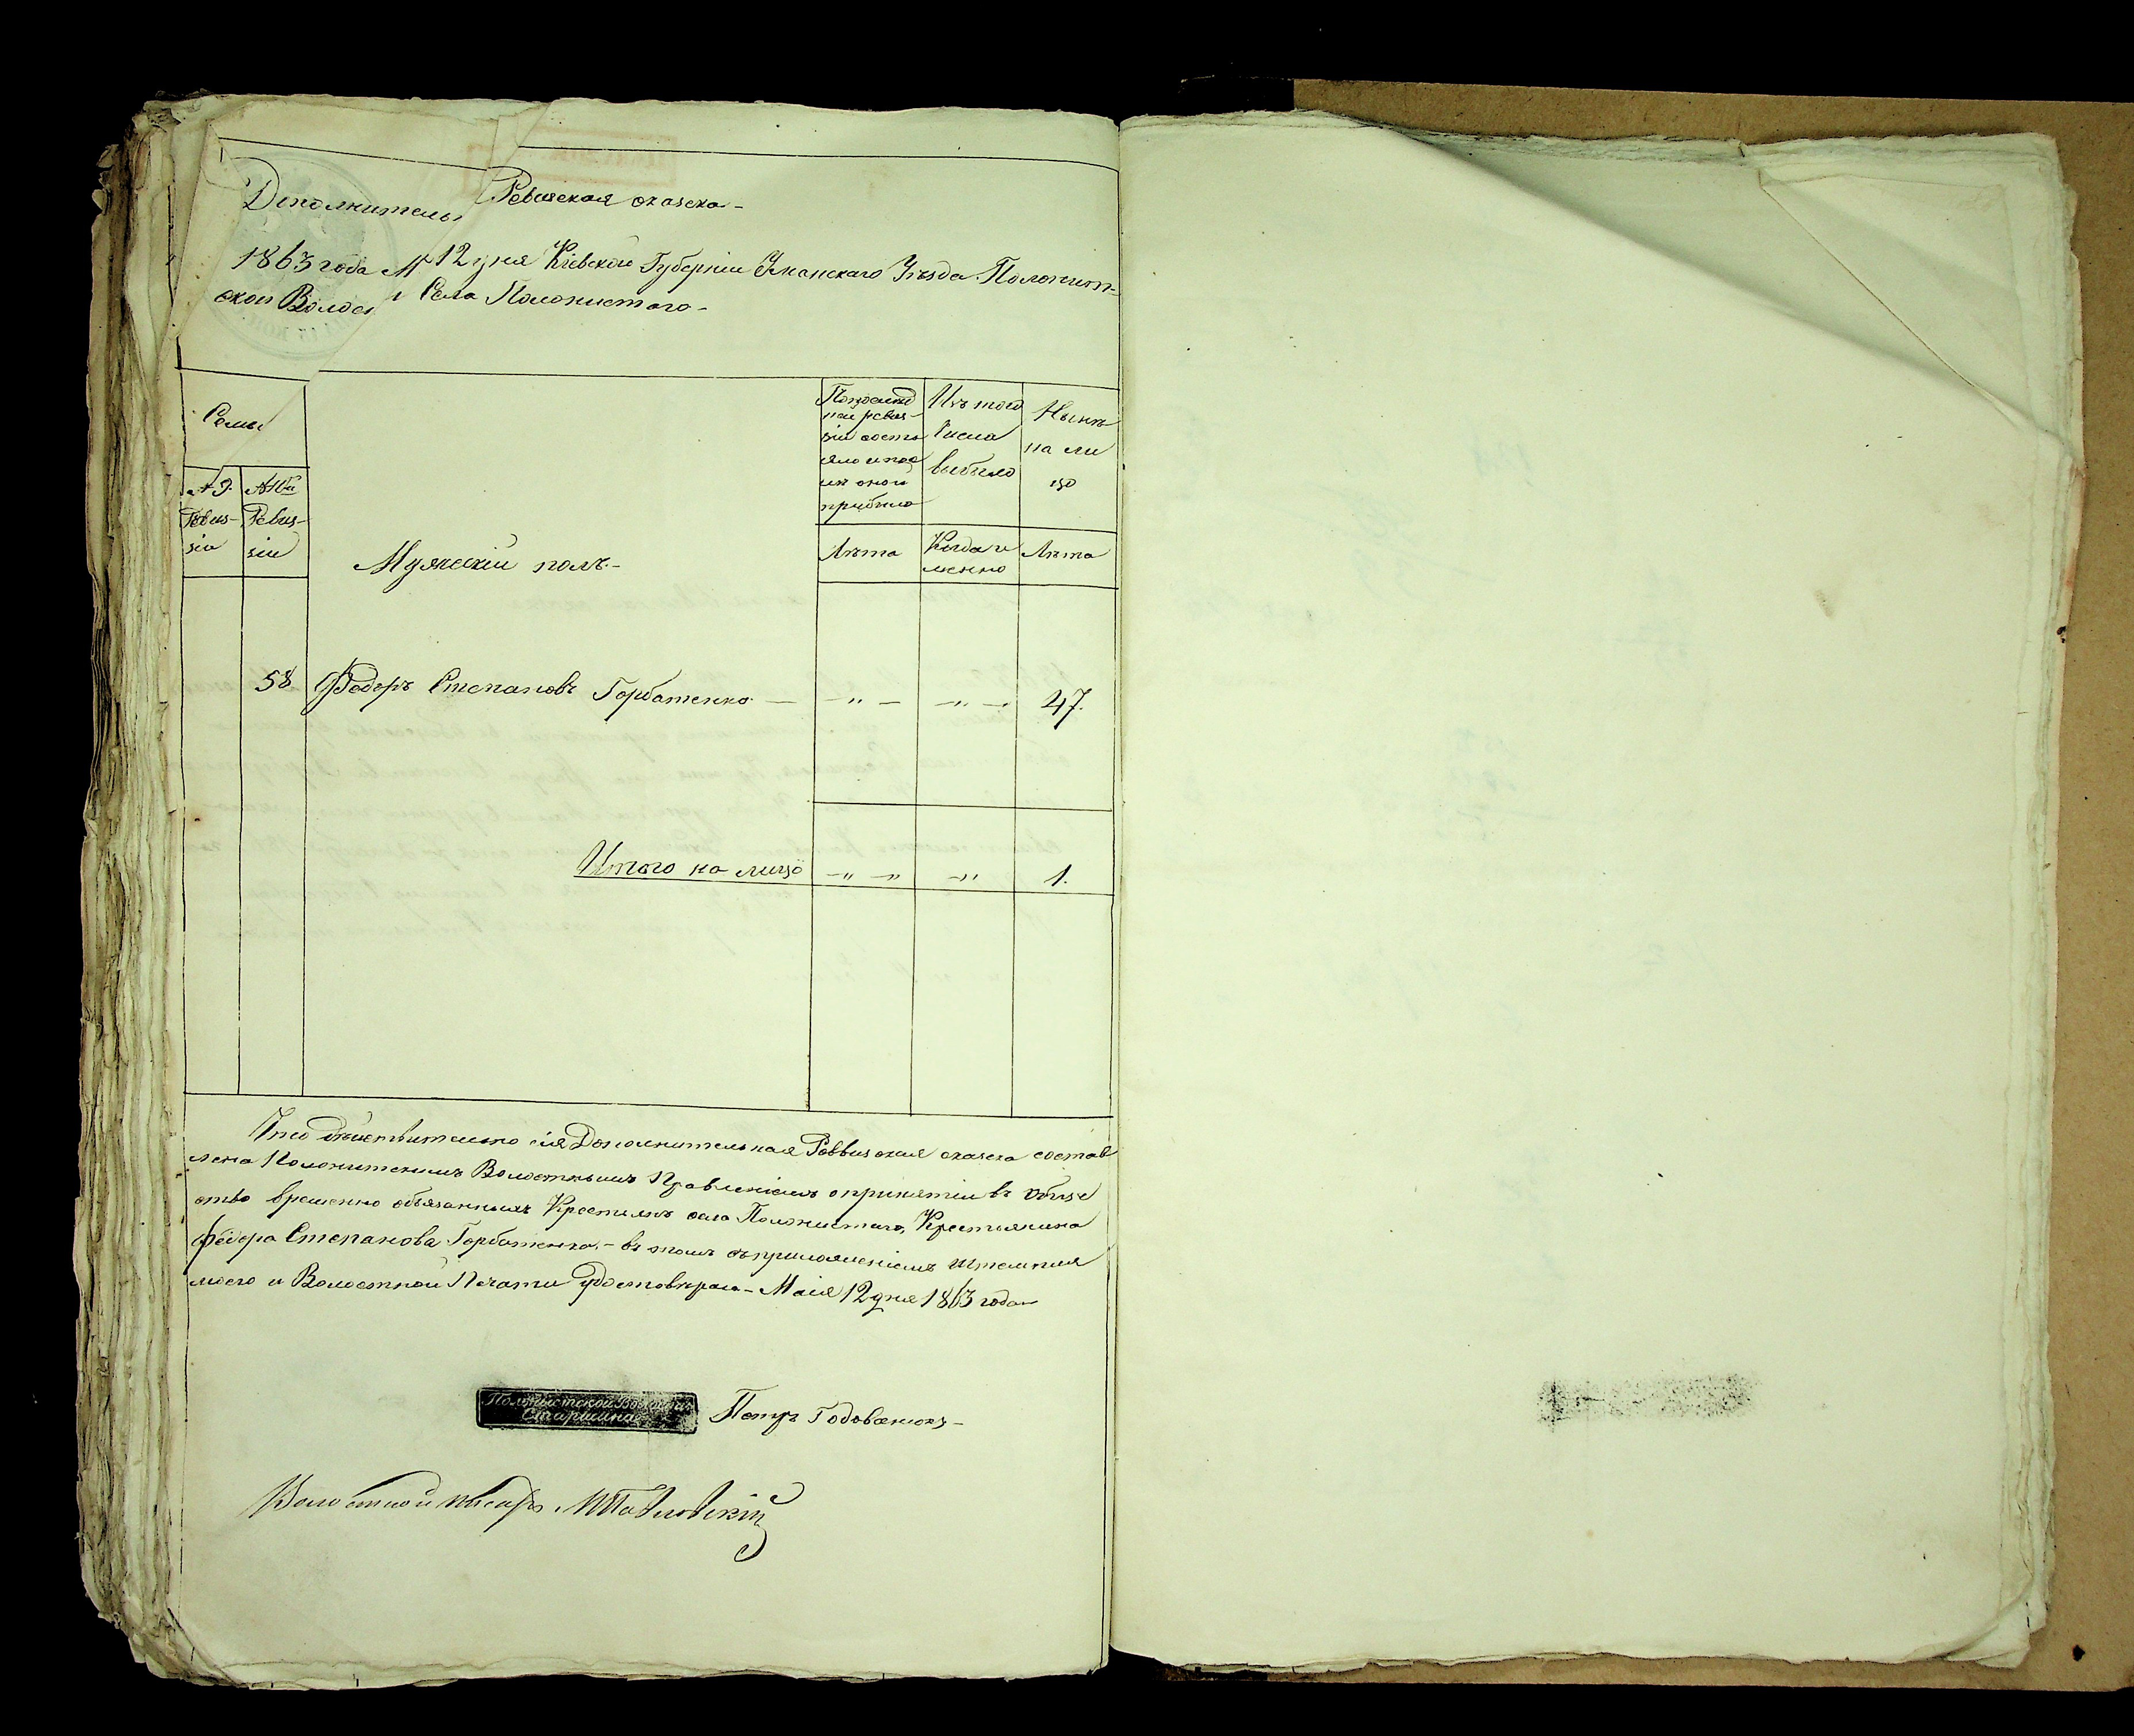 Дополнитель Ревизская сказка-
1863 года М 12 дня Кіевской Губерніи Уманскаго Уезда Полонист-
ской Волос и Села Полонистаго-
Семьи
По последней ревизіи состояло и после оной прибыло
Изъ того числа выбыло
Ныне на лицо
№ 9. Ревизіи
№ 10й Ревизіи
Мужескій полъ.-
Лета
Когда именно
Лета
58 Федоръ Степановъ Горбатенко — -„- -„- 47.
Итого на лицо -„ -„ -„ 1.
Что действительно сія Дополнительная Реввизская сказка состав
лена Полонистскимъ Волостнымъ Правленіемъ о принятіи въ обще
ство временно обязанныхъ Крестьянъ села Полонистаго, Крестьянина
Федора Степанова Горбатенка.- въ томъ съ приложеніемъ Штемпеля
моего и Волостной Печати удостоверяю- Маія 12 дня 1863 года
Полонистской Волости
Старшина
Петръ Годованюкъ-
Волостной писарь Павловскій